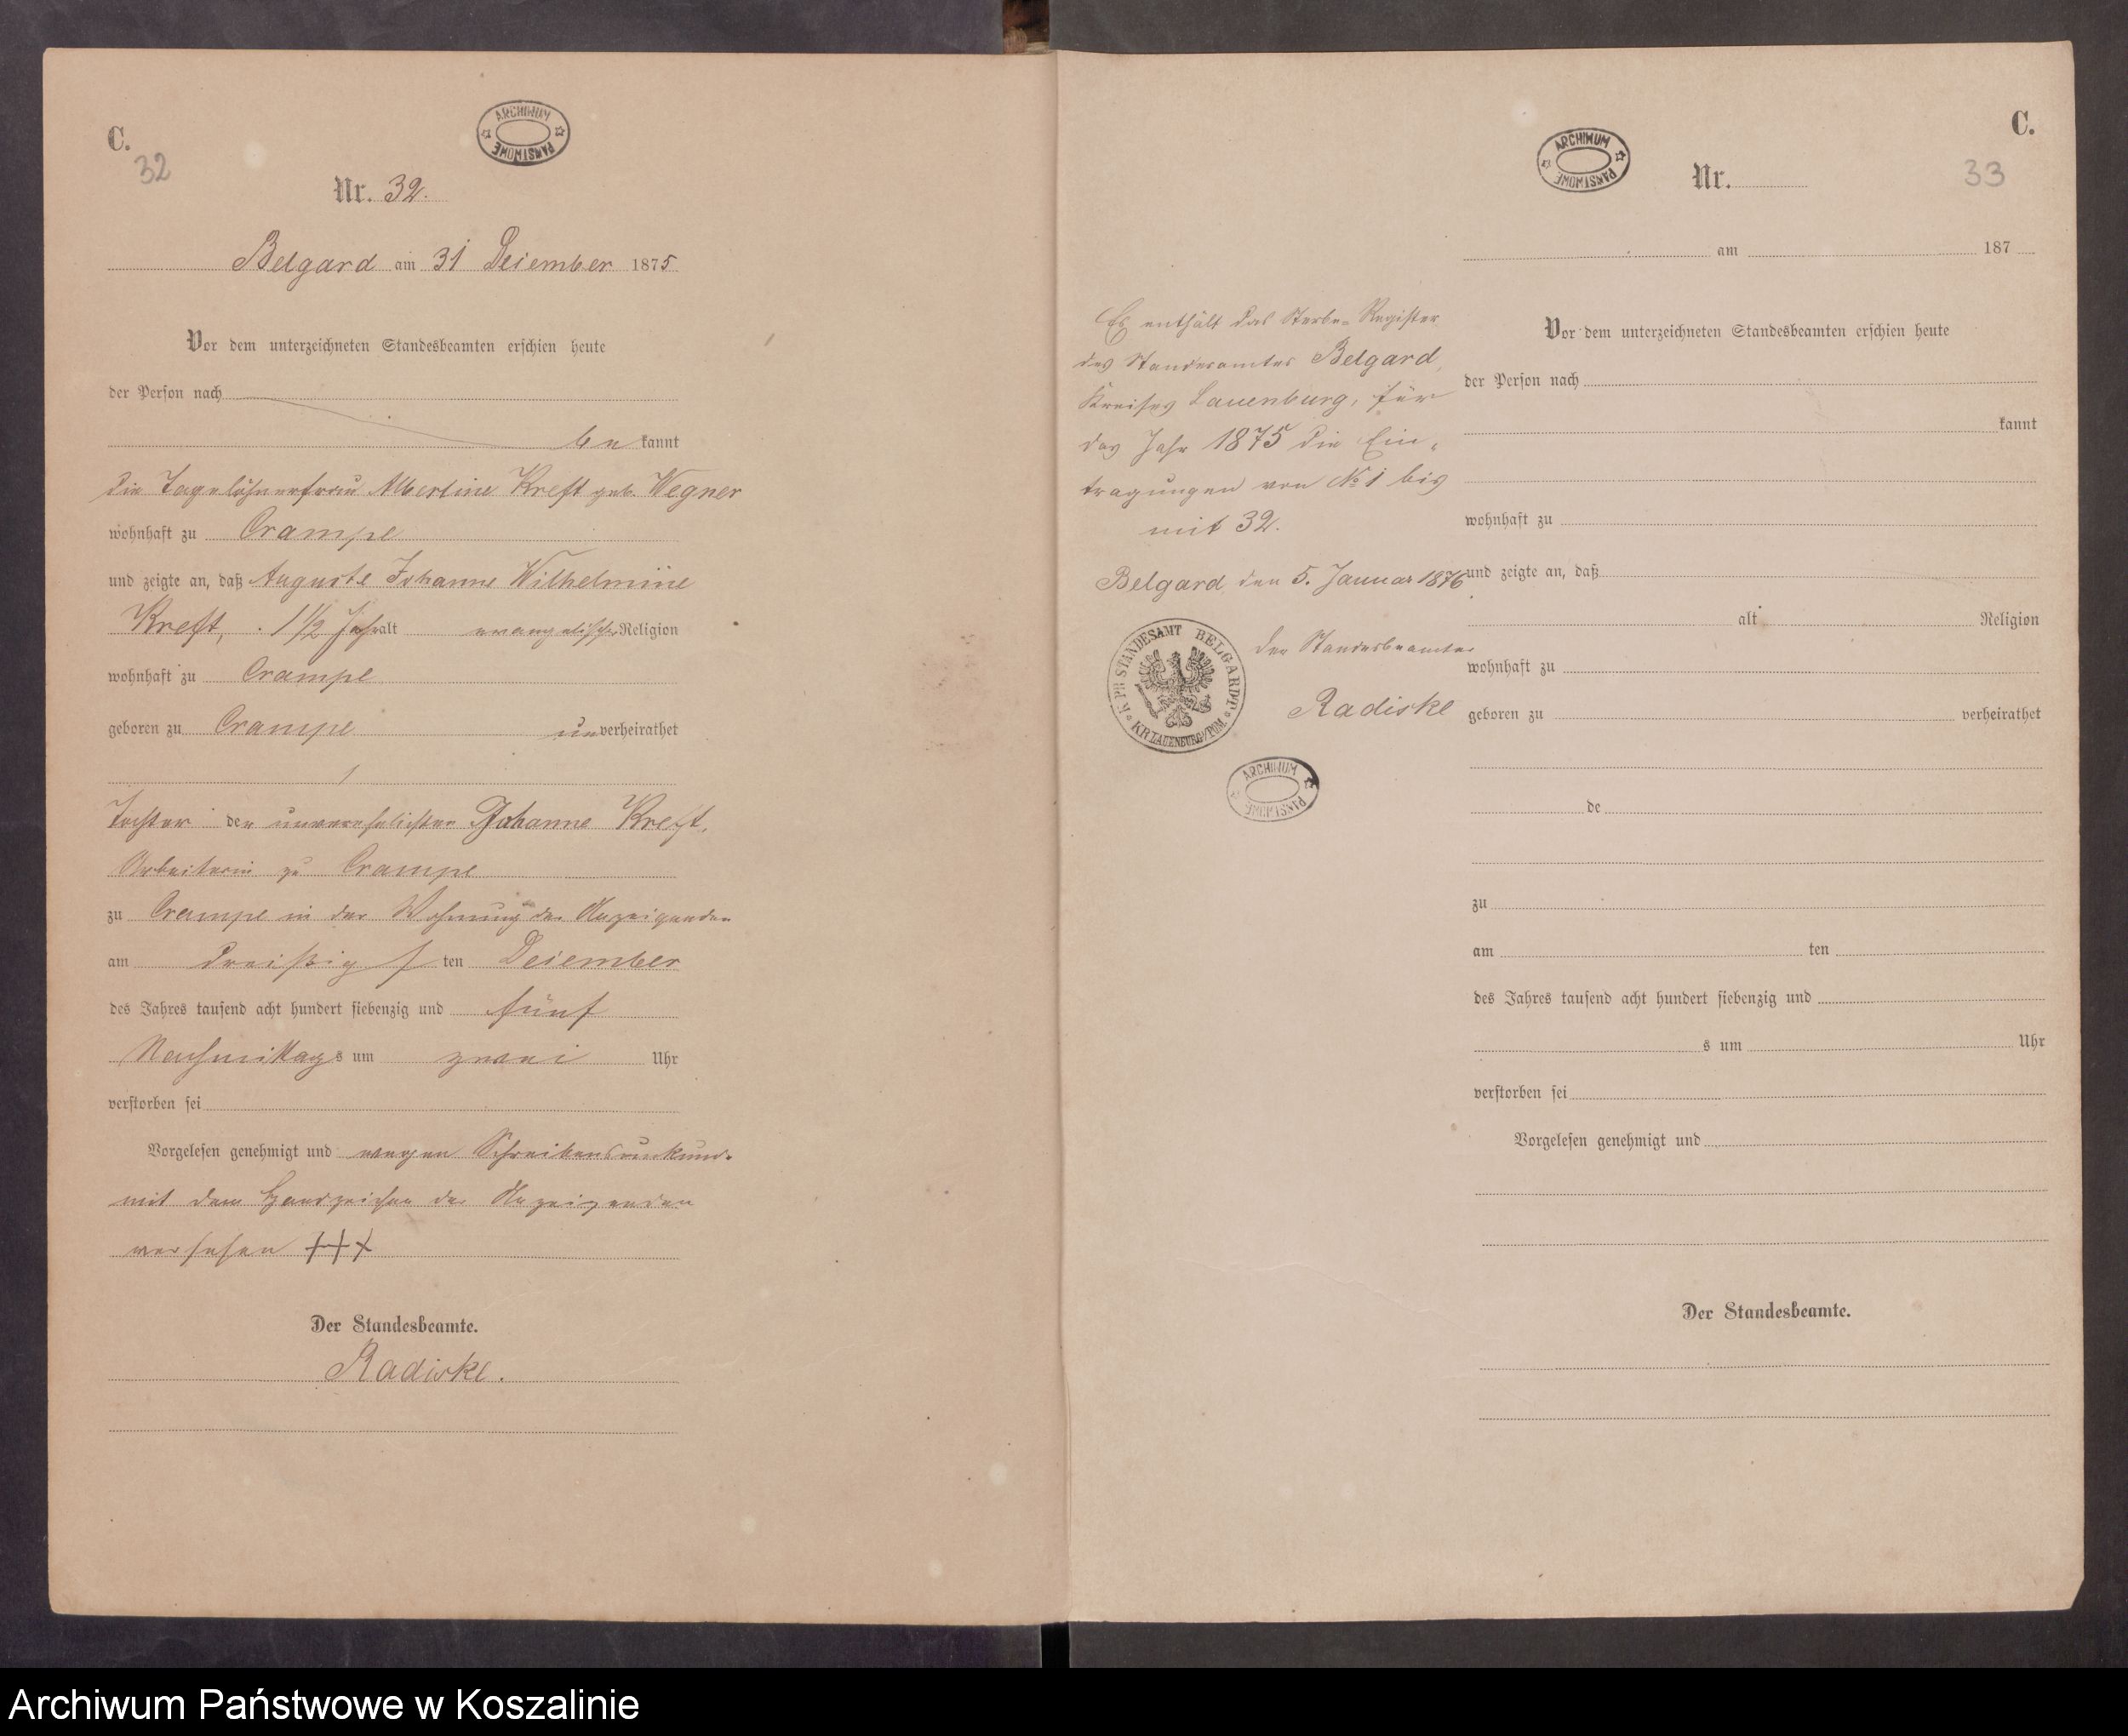 C.
32
ARCHIWUM PAŃSTWOWE
Nr. 32.
Belgard am 31 Dezember 1875
Vor dem unterzeichneten Standesbeamten erschien heute
der Person nach
be kannt
die Tagelöhnerfrau Albertine Kreft geb. Wegner
wohnhaft zu Crampe
und zeigte an, daß Auguste Johanne Wilhelmine
Kreft, 1½ Jahr alt evangelischer Religion
wohnhaft zu Crampe
geboren zu Crampe unverheirathet
Tochter der unverehelichten Johanne Kreft,
Arbeiterin zu Crampe
zu Crampe in der Wohnung der Anzeigenden
am dreißigsten Dezember
des Jahres tausend acht hundert siebenzig und fünf
Nachmittags um zwei Uhr
verstorben sei
Vorgelesen genehmigt und wegen Schreibensunkund.
mit dem Handzeichen der Anzeigenden
versehen +++
Der Standesbeamte.
Radiske.
C.
33
ARCHIWUM PAŃSTWOWE
Nr.
am 187
Es enthält das Sterbe-Register
des Standesamtes Belgard,
Kreises Lauenburg, für
das Jahr 1875 die Ein-
tragungen von № 1 bis
mit 32.
Belgard, den 5. Januar 1876
Der Standesbeamte
Radiske
K. PR. STANDESAMT BELGARD
KR. LAUENBURG/POM.
ARCHIWUM PAŃSTWOWE
Vor dem unterzeichneten Standesbeamten erschien heute
der Person nach
kannt
wohnhaft zu
und zeigte an, daß
alt Religion
wohnhaft zu
geboren zu verheirathet
de
zu
am ten
des Jahres tausend acht hundert siebenzig und
s um Uhr
verstorben sei
Vorgelesen genehmigt und
Der Standesbeamte.
Archiwum Państwowe w Koszalinie